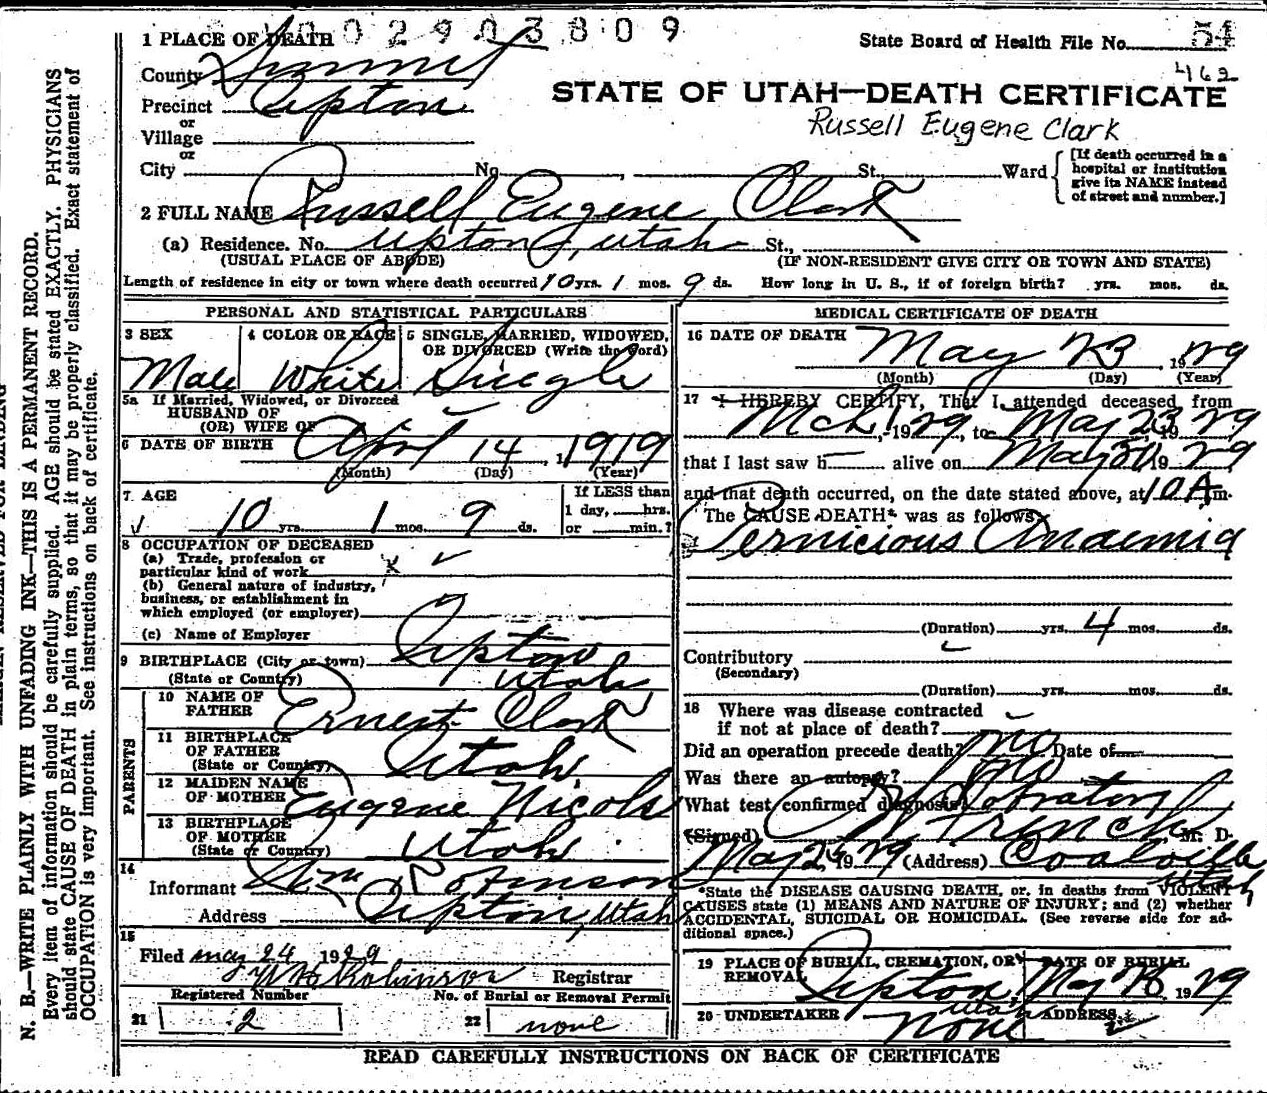 0 0 2 9 0 3 8 0 9
1 PLACE OF DEATH
State Board of Health File No. 54
462
County Summit
STATE OF UTAH—DEATH CERTIFICATE
Precinct Upton
or
Russell Eugene Clark
Village
or
City No. , St., Ward
[If death occurred in a
hospital or institution
give its NAME instead
of street and number.]
2 FULL NAME Russell Eugene Clark
(a) Residence. No. Upton, Utah St.,
(USUAL PLACE OF ABODE) (IF NON-RESIDENT GIVE CITY OR TOWN AND STATE)
Length of residence in city or town where death occurred 10 yrs. 1 mos. 9 ds. How long in U. S., if of foreign birth? yrs. mos. ds.
PERSONAL AND STATISTICAL PARTICULARS
3 SEX
Male
4 COLOR OR RACE
White
5 SINGLE, MARRIED, WIDOWED,
OR DIVORCED (Write the word)
Single
5a If Married, Widowed, or Divorced
HUSBAND OF
(OR) WIFE OF
6 DATE OF BIRTH April 14, 1919
(Month) (Day) (Year)
7 AGE
10 yrs. 1 mos. 9 ds.
If LESS than
1 day, hrs.
or min.?
8 OCCUPATION OF DECEASED
(a) Trade, profession or
particular kind of work
(b) General nature of industry,
business, or establishment in
which employed (or employer)
(c) Name of Employer
9 BIRTHPLACE (City or town) Upton
(State or Country) Utah
PARENTS
10 NAME OF
FATHER Ernest Clark
11 BIRTHPLACE
OF FATHER
(State or Country) Utah
12 MAIDEN NAME
OF MOTHER Eugene Nicols
13 BIRTHPLACE
OF MOTHER
(State or Country) Utah
14
Informant Wm Robinson
Address Upton, Utah
15
Filed May 24 1929
W H Robinson Registrar
Registered Number No. of Burial or Removal Permit
21 2 22 none
MEDICAL CERTIFICATE OF DEATH
16 DATE OF DEATH May 23 1929
(Month) (Day) (Year)
17 I HEREBY CERTIFY, That I attended deceased from
Mch 1, 1929, to May 23 1929
that I last saw h alive on May 1929
and that death occurred, on the date stated above, at 10 A m.
The CAUSE DEATH* was as follows:
Pernicious Anaemia
(Duration) yrs. 4 mos. ds.
Contributory
(Secondary)
(Duration) yrs. mos. ds.
18 Where was disease contracted
if not at place of death?
Did an operation precede death? no Date of
Was there an autopsy? no
What test confirmed diagnosis?
(Signed) M. D.
May 1929 (Address) Coalville
Utah
*State the DISEASE CAUSING DEATH, or, in deaths from VIOLENT
CAUSES state (1) MEANS AND NATURE OF INJURY; and (2) whether
ACCIDENTAL, SUICIDAL OR HOMICIDAL. (See reverse side for ad-
ditional space.)
19 PLACE OF BURIAL, CREMATION, OR
REMOVAL Upton, Utah
DATE OF BURIAL
May 1929
20 UNDERTAKER None
ADDRESS
READ CAREFULLY INSTRUCTIONS ON BACK OF CERTIFICATE
N. B.—WRITE PLAINLY WITH UNFADING INK—THIS IS A PERMANENT RECORD.
Every item of information should be carefully supplied. AGE should be stated EXACTLY. PHYSICIANS
should state CAUSE OF DEATH in plain terms, so that it may be properly classified. Exact statement of
OCCUPATION is very important. See instructions on back of certificate.